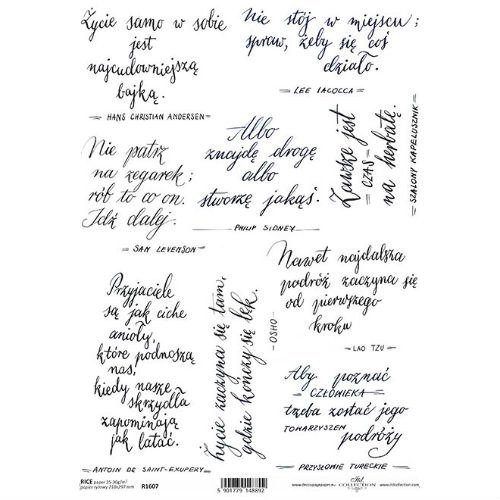 Życie samo w sobie
jest
najcudowniejszą
bajką.
HANS CHRISTIAN ANDERSEN
Nie stój w miejscu;
spraw, żeby się coś
działo.
LEE IACOCCA
Nie patrz
na zegarek;
rób to co on.
Idź dalej.
SAN LEVENSON
Albo
znajdę drogę
albo
stworzę jakąś.
PHILIP SIDNEY
Zawsze jest
CZAS
na herbatę.
SZALONY KAPELUSZNIK
Przyjaciele
są jak ciche
anioły,
które podnoszą
nas,
kiedy nasze
skrzydła
zapominają
jak latać.
ANTOIN DE SAINT-EXUPERY
Życie zaczyna się tam,
gdzie kończy się lęk.
OSHO
Nawet najdalsza
podróż zaczyna się
od pierwszego
kroku
LAO TZU
Aby poznać
CZŁOWIEKA
trzeba zostać jego
TOWARZYSZEM
podróży
PRZYSŁOWIE TURECKIE
RICE paper 25-30g/m²
papier ryżowy 210x297 mm
R1607
5 901779 148892
ITD
COLLECTION
www.decoupagepaper.com
www.itdcollection.com